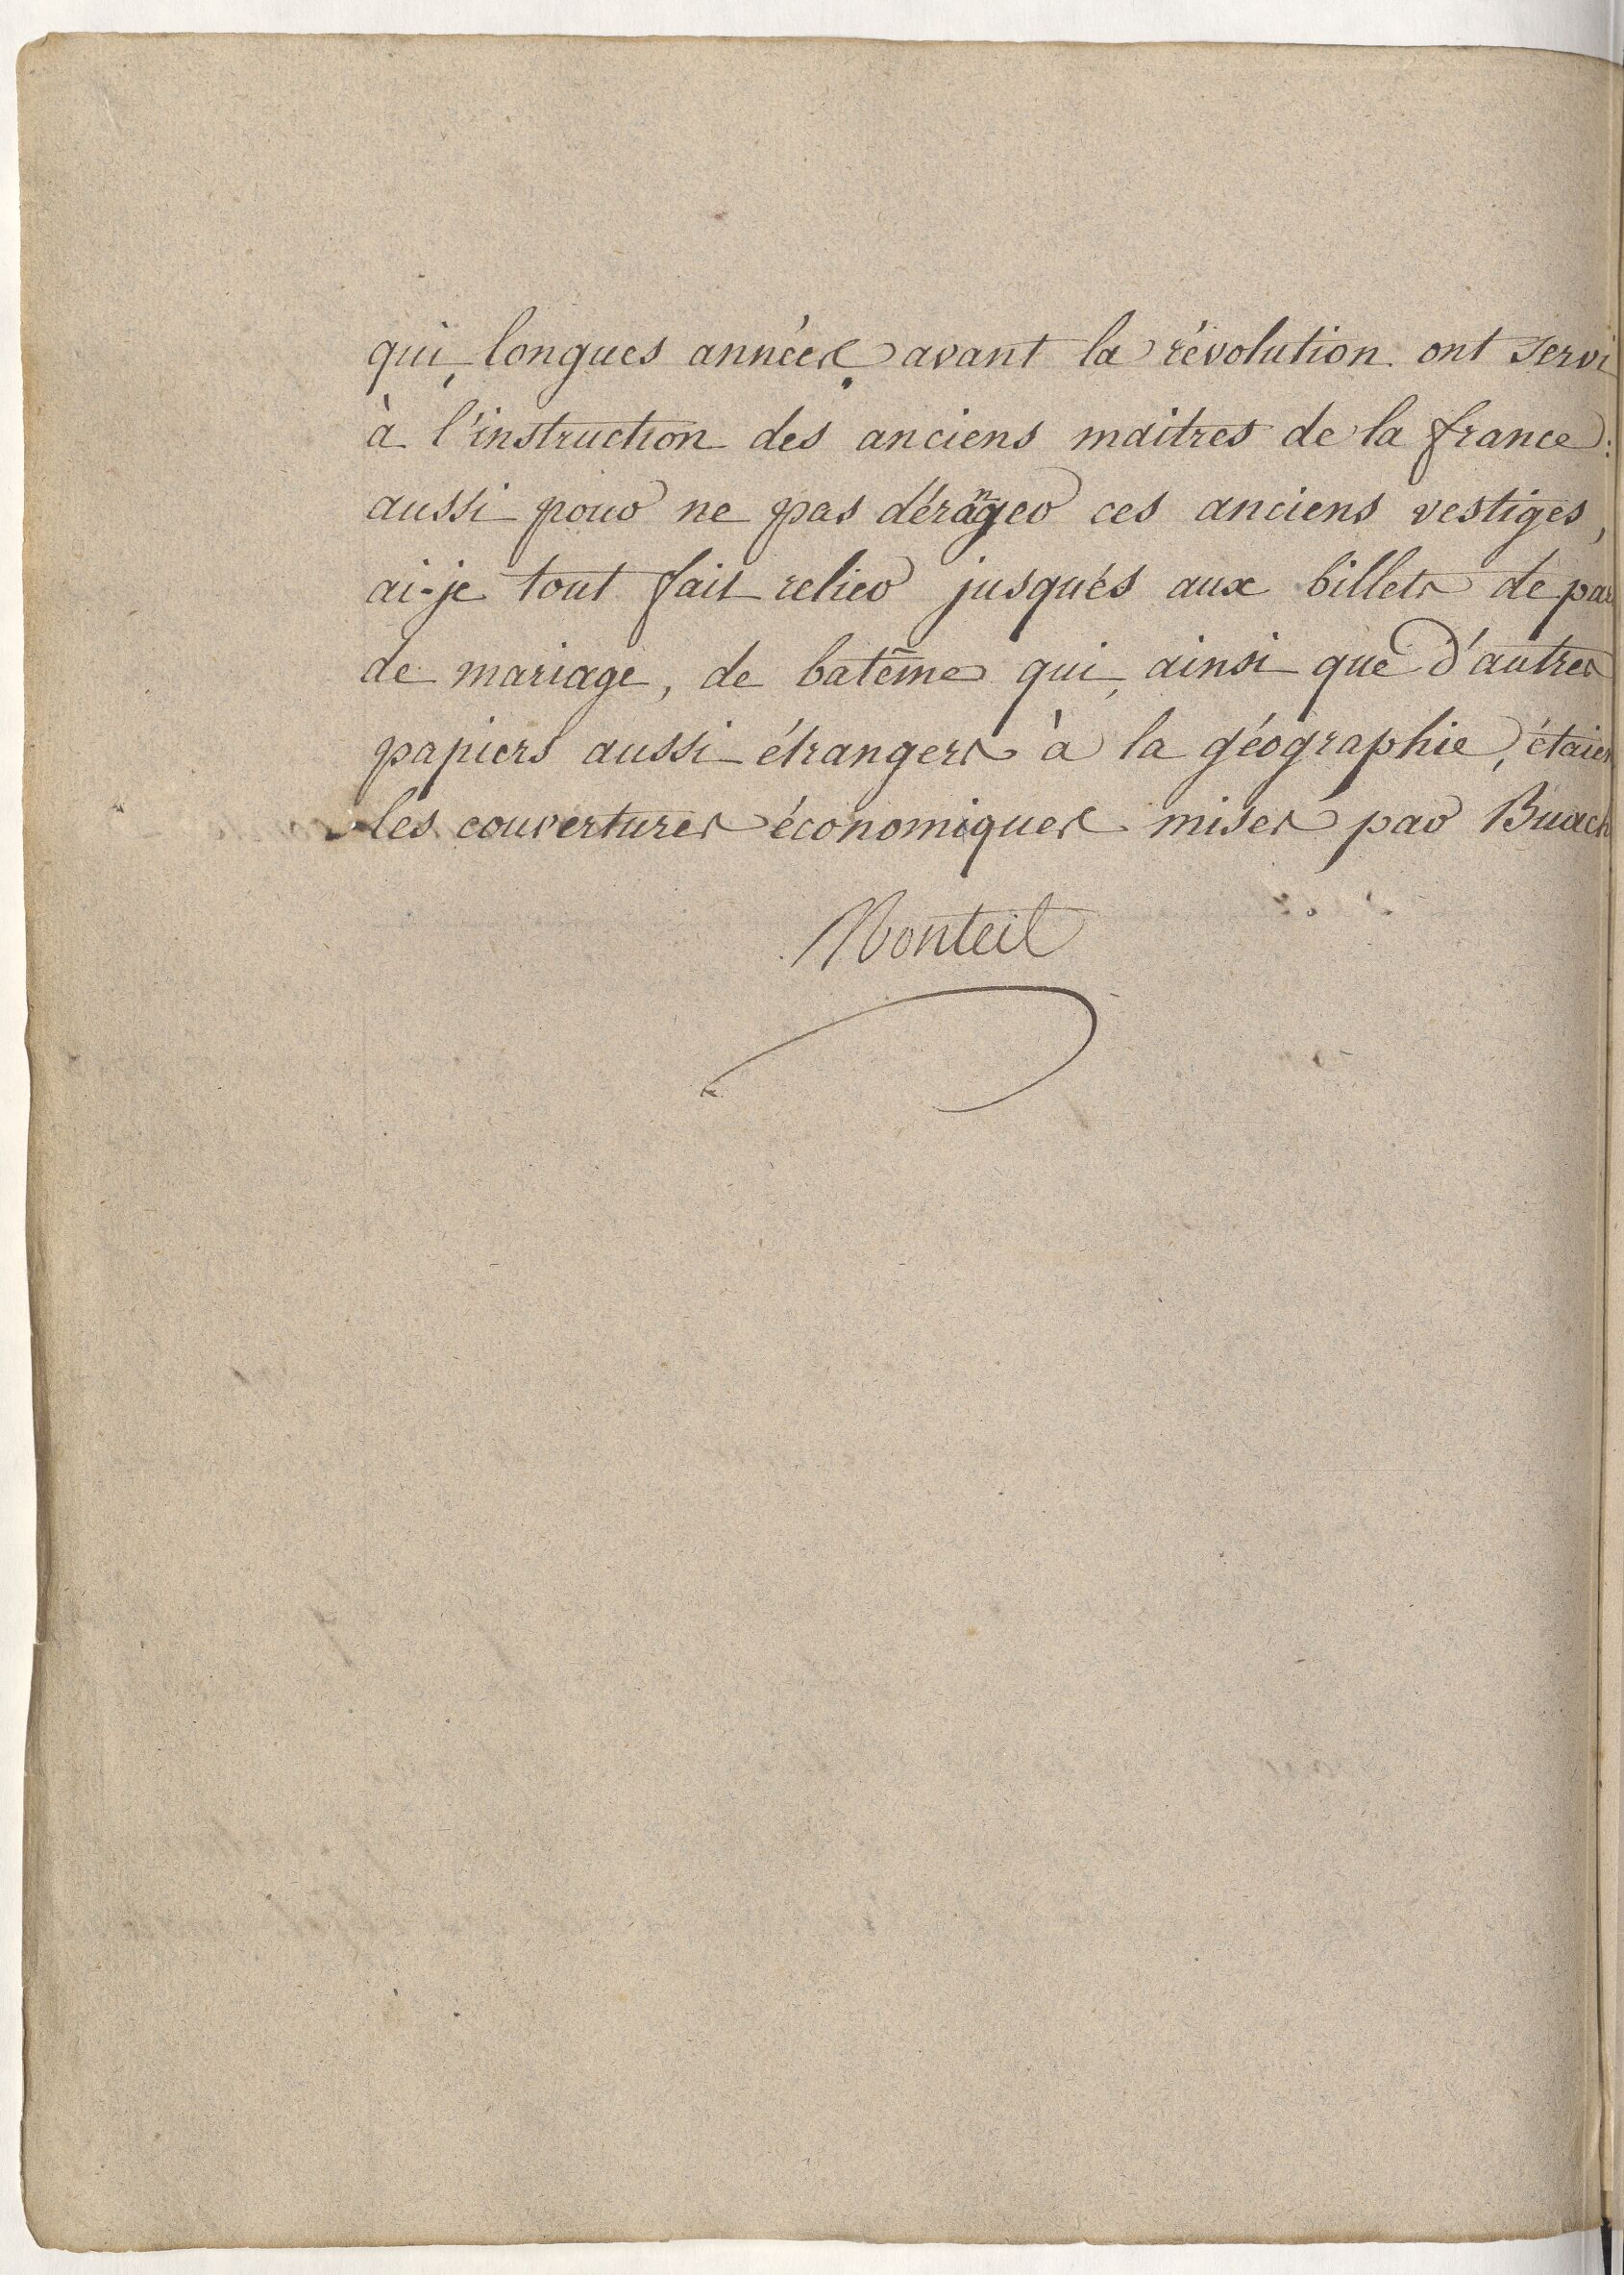 qui, longues années avant la révolution ont servi
à l'instruction des anciens maitres de la france :
aussi pour ne pas déranger ces anciens vestiges,
ai-je tout fait relier jusqués aux billets de
de mariage, de batême qui, ainsi que d'autres
papiers aussi étrangers à la géographie, étaien
les couvertures économiques mises par Buach
Monteil